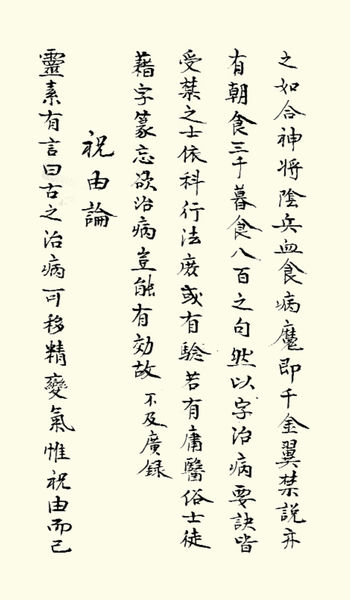 之如合神將陰兵血食病魔即千金翼禁說亦
有朝食三千暮食八百之句然以字治病要訣皆
受禁之士依科行法庶或有驗若有庸醫俗士徒
藉字篆忘欲治病豈能有効故不及廣錄
祝由論
靈素有言曰古之治病可移精變氣惟祝由而已